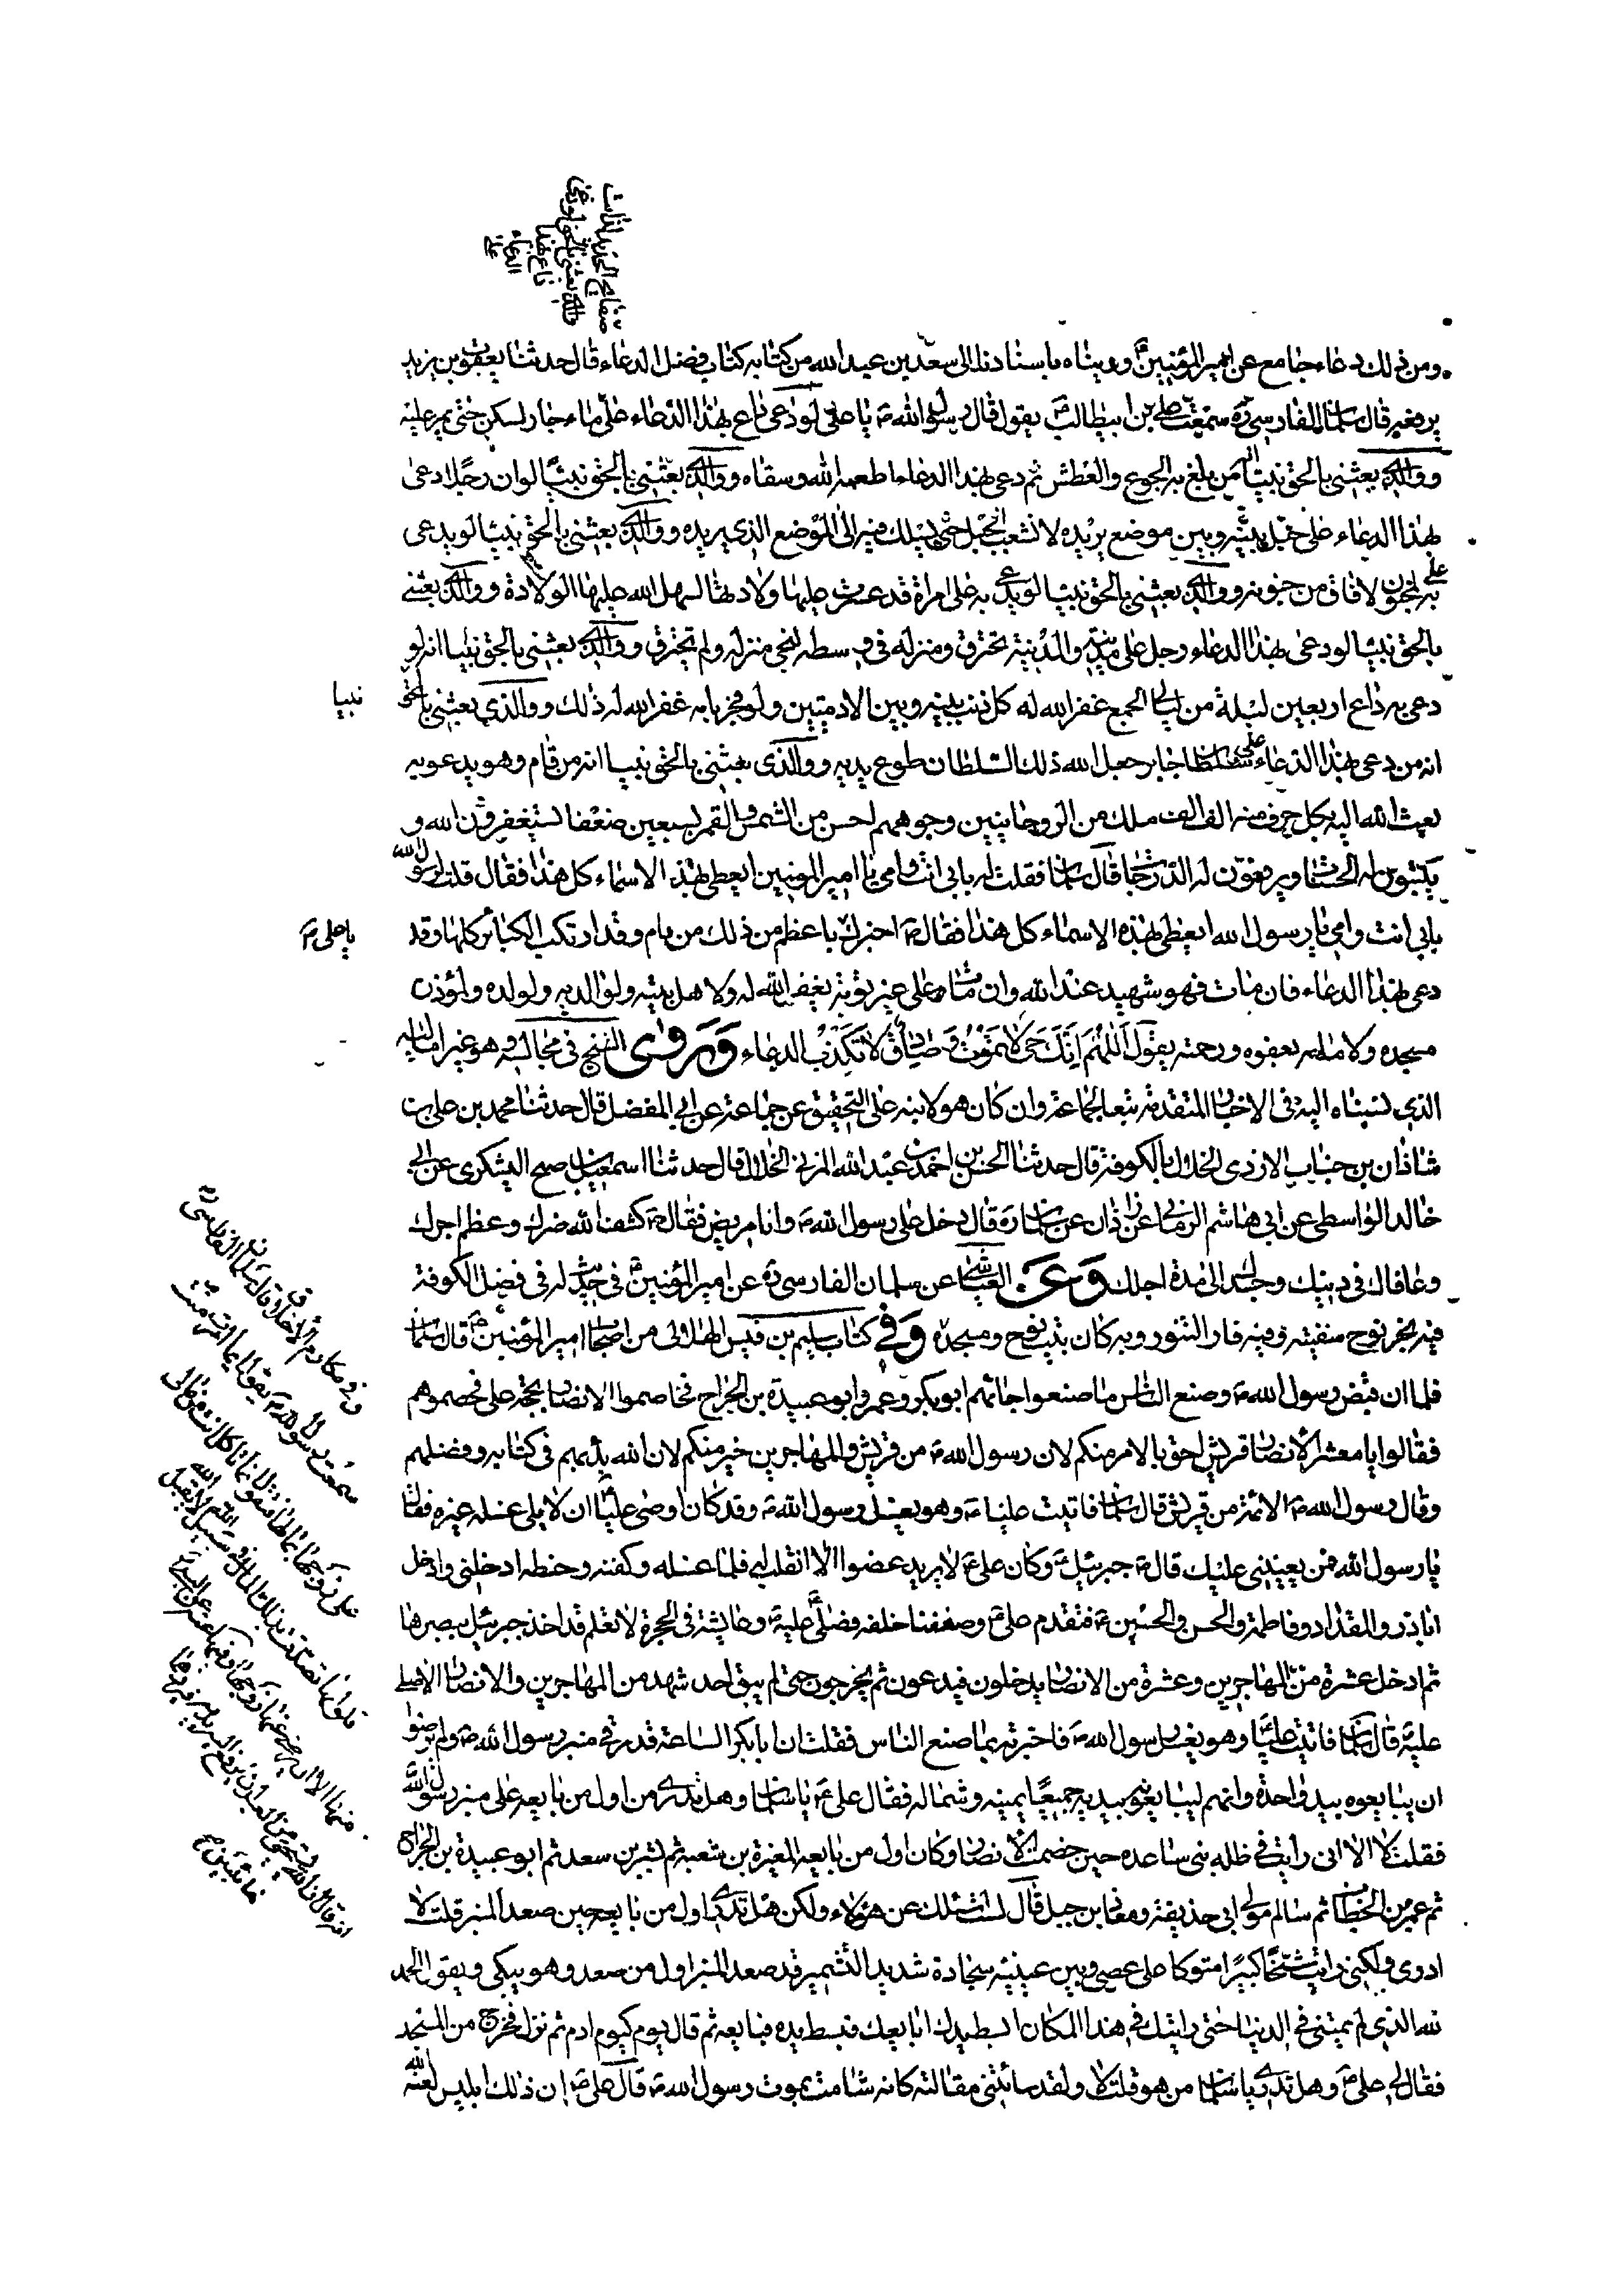 ومن ذلك دعاء جامع عن امير المؤمنين ورويناه باسنادنا الى سعد بن عبد الله من كتابه كتاب فضل الدعاء قال حدثنا يعقوب بن يزيد
يرفعه قال سلمان الفارسي ره سمعت علي بن ابيطالب يقول قال رسول الله ص يا علي لو دعى داع بهذا الدعاء على ماء جار لسكن حتى يمر عليه
ووالذي بعثني بالحق نبيا انه من بلغ به الجوع والعطش ثم دعى بهذا الدعاء اطعمه الله وسقاه ووالذي بعثني بالحق نبيا لو ان رجلا دعى
بهذا الدعاء على جبل بينه وبين موضع يريده لانشعب الجبل حتى يسلك فيه الى الموضع الذي يريده ووالذي بعثني بالحق نبيا لو يدعى
به على مجنون لافاق من جنونه ووالذي بعثني بالحق نبيا لو يدعى به على امراة قد عسرت عليها ولادتها لسهل الله عليها الولادة ووالذي بعثني
بالحق نبيا لو دعى بهذا الدعاء رجل على مدينة والمدينة تحترق ومنزله في وسطه لنجى منزله ولم يحترق ووالذي بعثني بالحق نبيا انه لو
دعى به داع اربعين ليلة من ليالي الجمع غفر الله له كل ذنب بينه وبين الادميين ولو فجر بامه غفر الله له ذلك ووالذي بعثني بالحق
نبيا
انه من دعى بهذا الدعاء على سلطان جاير جعل الله ذلك السلطان طوع يديه ووالذي بعثني بالحق نبيا انه من قام وهو يدعو به
بعث الله اليه بكل حرف منه الف الف ملك من الروحانيين وجوههم احسن من الشمس والقمر بسبعين ضعفا يستغفرون الله و
يكتبون له الحسنات ويرفعون له الدرجات قال سلمان فقلت له بابي انت وامي يا امير المؤمنين ايعطى بهذه الاسماء كل هذا فقال قلت لرسول الله
بابي انت وامي يا رسول الله ايعطى بهذه الاسماء كل هذا فقال ص اخبرك باعظم من ذلك من نام وقد ارتكب الكبائر كلها وقد
يا علي م
دعى بهذا الدعاء فان مات فهو شهيد عند الله وان مات على غير توبة يغفر الله له ولاهل بيته ولوالديه ولولده ولمؤذن
مسجده ولامامه بعفوه ورحمته يقول اللهم انك حي لا تموت وصادق لا تكذب الدعاء وروى الشيخ في مجالسه وهو غير اماليه
الذي نسبناه اليه في الاخبار المتقدمة تبعا لجماعة وان كان هو لابنه على التحقيق عن جماعة عن ابي المفضل قال حدثنا محمد بن علي بن
شاذان بن حباب الازدي الخلال بالكوفة قال حدثنا الحسن بن احمد بن عبد الله المزني الخلال قال حدثنا اسمعيل بن صبيح اليشكري عن ابي
خالد الواسطي عن ابي هاشم الرماني عن زاذان عن سلمان ره قال دخل علي رسول الله ص وانا مريض فقال ص كشف الله ضرك وعظم اجرك
وعافاك في دينك وجسدك الى مدة اجلك وعن العياشي عن سلمان الفارسي ره عن امير المؤمنين في حديث له في فضل الكوفة
فيه نجر نوح سفينته وفيه فار التنور وبه كان بيت نوح ومسجده وفي كتاب سليم بن قيس الهلالي من اصحاب امير المؤمنين قال سلمان
فلما ان قبض رسول الله ص وصنع الناس ما صنعوا جاءهم ابو بكر وعمر وابو عبيدة بن الجراح فخاصموا الانصار بحجة علي فخصموهم
فقالوا يا معشر الانصار قريش احق بالامر منكم لان رسول الله ص من قريش والمهاجرين خير منكم لان الله بدء بهم في كتابه وفضلهم
وقال رسول الله ص الائمة من قريش قال سلمان فاتيت عليا ع وهو يغسل رسول الله ص وقد كان اوصى عليا ان لا يلي غسله غيره فقال
يا رسول الله من يعينني عليك قال ع جبرئيل ع وكان علي ع لا يريد عضوا الا انقلب له فلما غسله وكفنه وحنطه ادخلني وادخل
اباذر والمقداد وفاطمة والحسن والحسين ع فتقدم علي ع وصففنا خلفه فصلى عليه وعايشة في الحجرة لا تعلم قد اخذ جبرئيل ببصرها
ثم ادخل عشرة من المهاجرين وعشرة من الانصار يدخلون فيدعون ثم يخرجون حتى لم يبق احد شهد من المهاجرين والانصار الا صلى
عليه قال سلمان فاتيت عليا وهو يغسل رسول الله ص فاخبرته بما صنع الناس فقلت ان ابا بكر الساعة قد رقى منبر رسول الله ص ولم يرضوا
ان يبايعوه بيد واحدة وانهم ليبايعونه بيديه جميعا يمينه وشماله فقال علي ع يا سلمان وهل تدري من اول من بايعه على منبر رسول الله
فقلت لا الا اني رأيت في ظله بني ساعده حين خصمت الانصار وكان اول من بايعه المغيرة بن شعبة ثم بشير بن سعد ثم ابو عبيدة بن الجراح
ثم عمر بن الخطاب ثم سالم مولى ابي حذيفة ومعاذ بن جبل قال لست اسئلك عن هؤلاء ولكن هل تدري اول من بايعه حين صعد المنبر قلت لا
ادري ولكني رايت شيخا كبيرا متوكا على عصى وبين عينيه سجادة شديد التشمير قد صعد المنبر اول من صعد وهو يبكي ويقول الحمد
لله الذي لم يمتني في الدنيا حتى رايتك في هذا المكان ابسط يدك ابايعك فبسط يده فبايعه ثم قال يوم كيوم ادم ثم نزل فخرج من المسجد
فقال لي علي ع وهل تدري يا سلمان من هو قلت لا ولقد سائتني مقالته كانه شامت بموت رسول الله ص قال علي ع ان ذلك ابليس لعنه الله